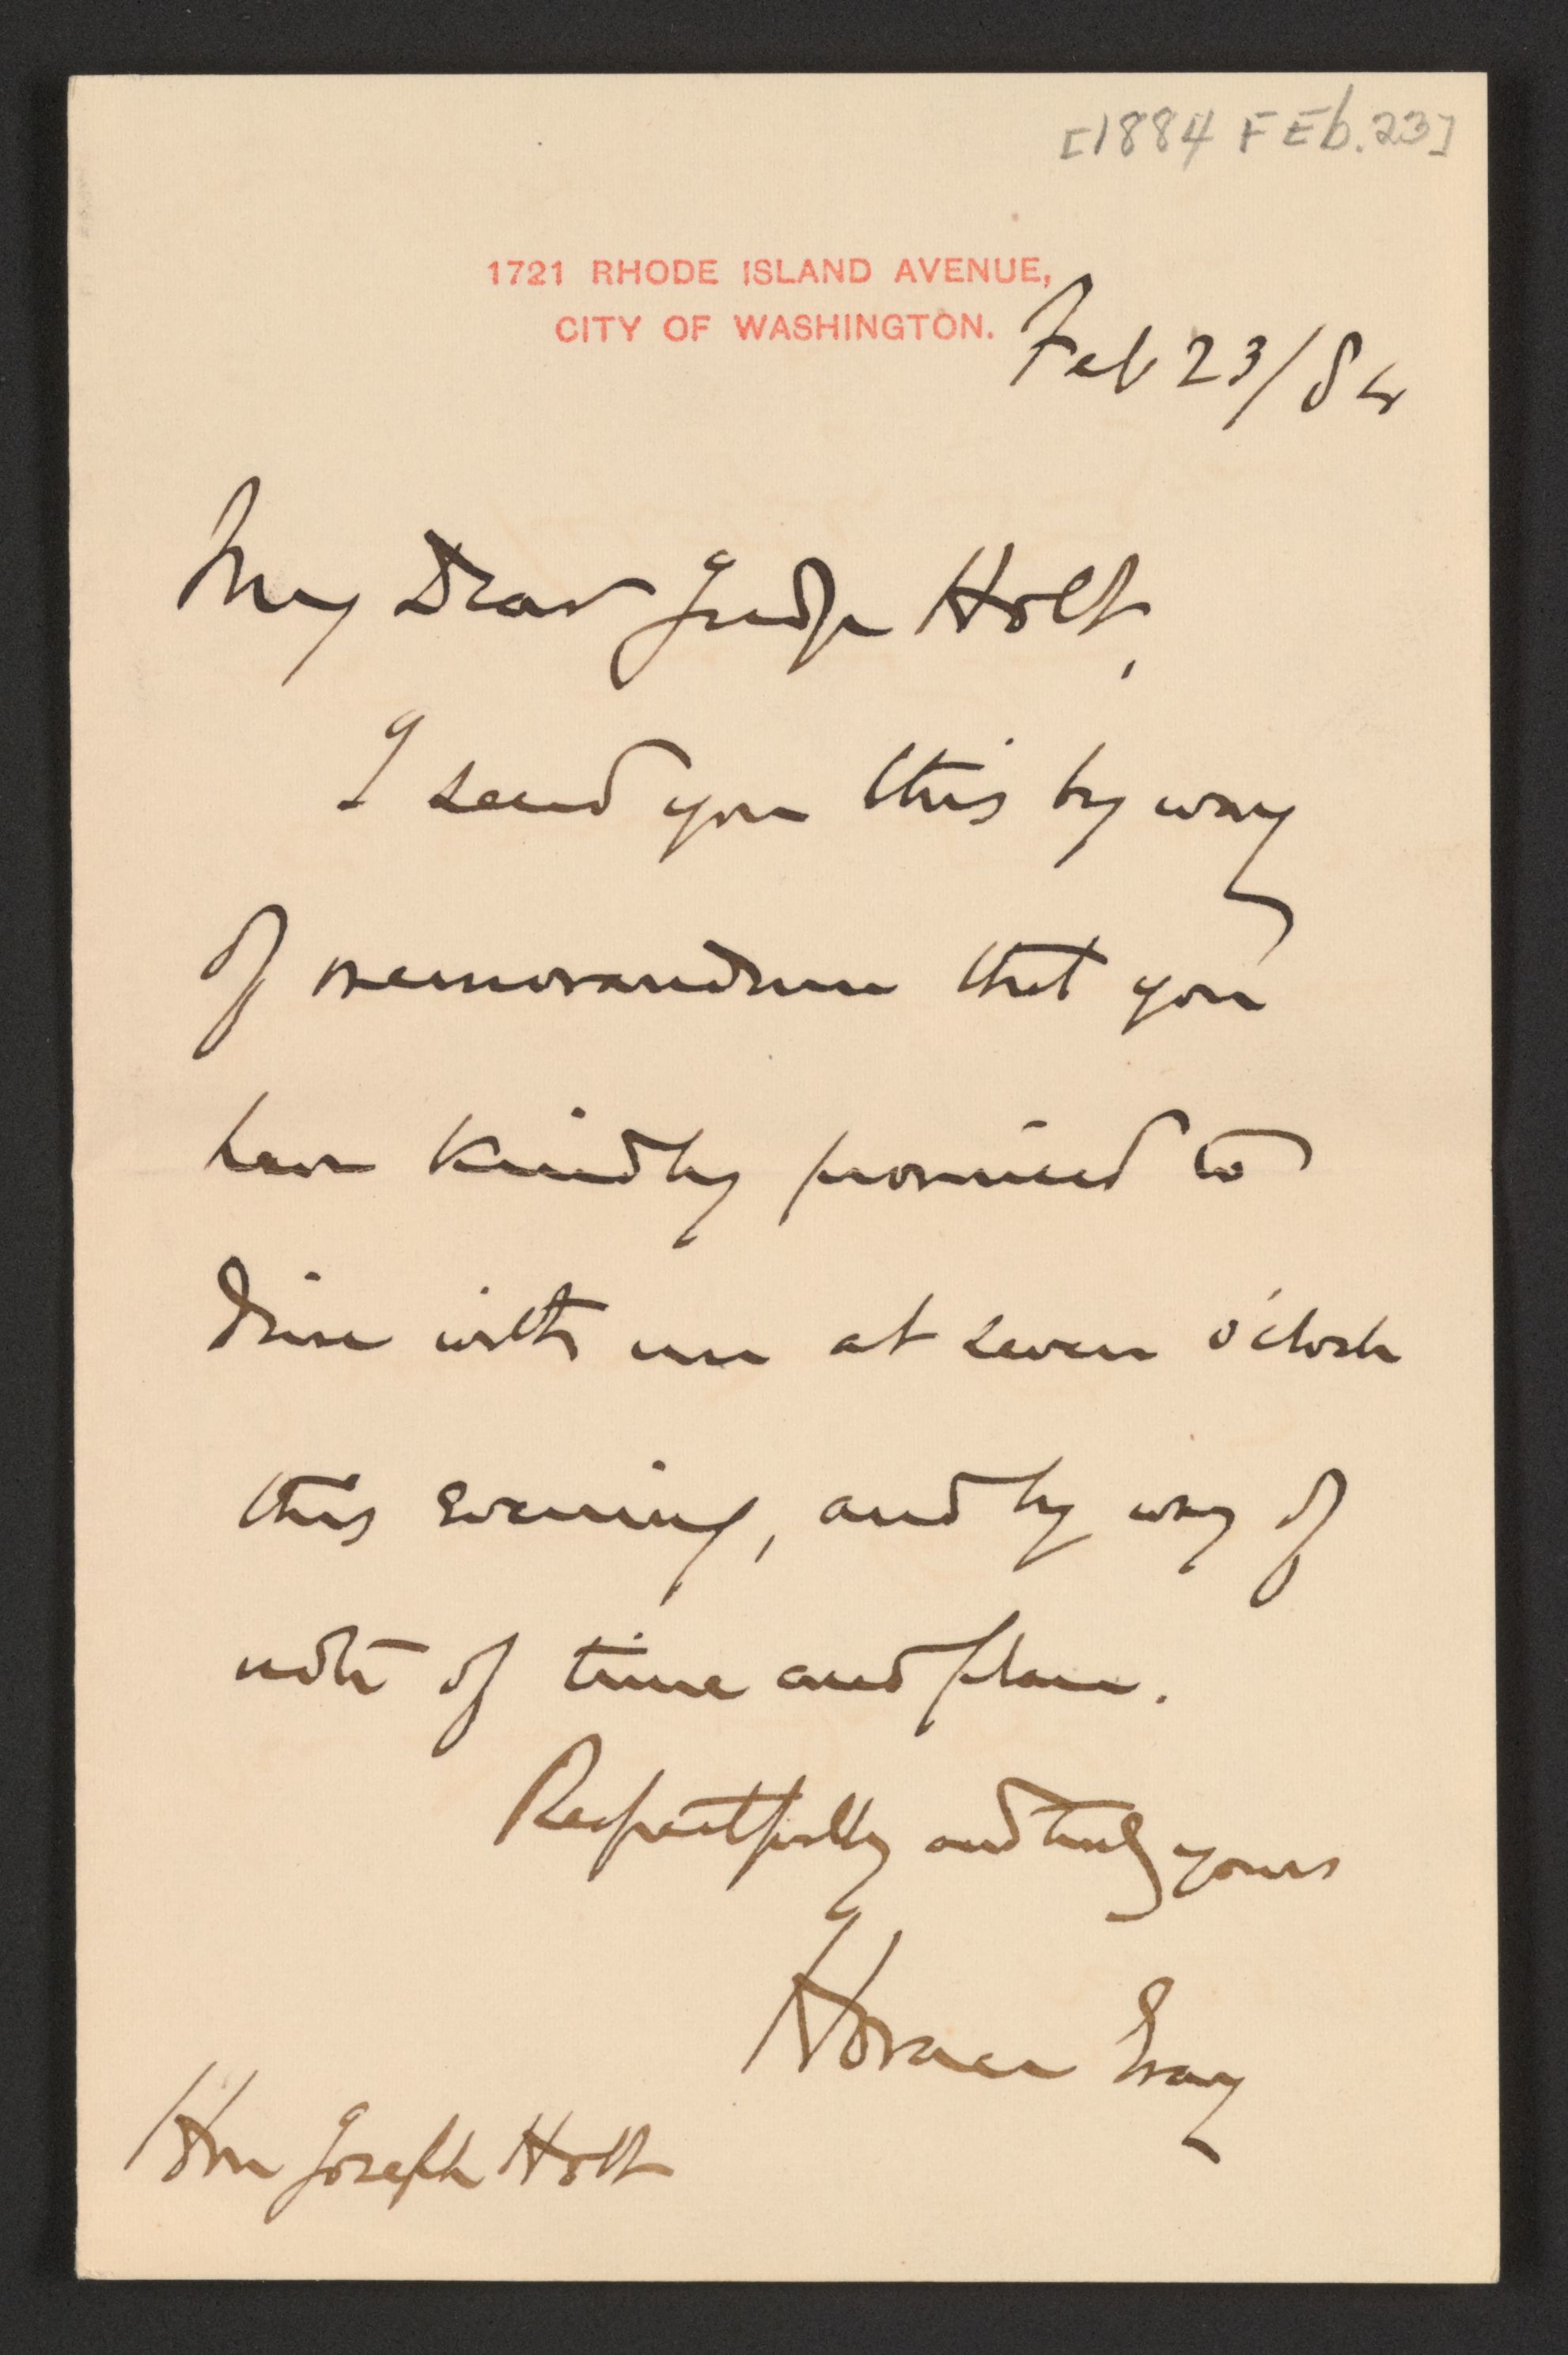 [1884 FEb. 23]
1721 RHODE ISLAND AVENUE,
CITY OF WASHINGTON.
Feb 23/84
My Dear Judge Holt,
I send you this by way
of memorandum that you
have kindly promised to
dine with me at seven o'clock
this evening, and by way of
note of time and place.
Respectfully and truly yours
Horace Gray
Hon Joseph Holt